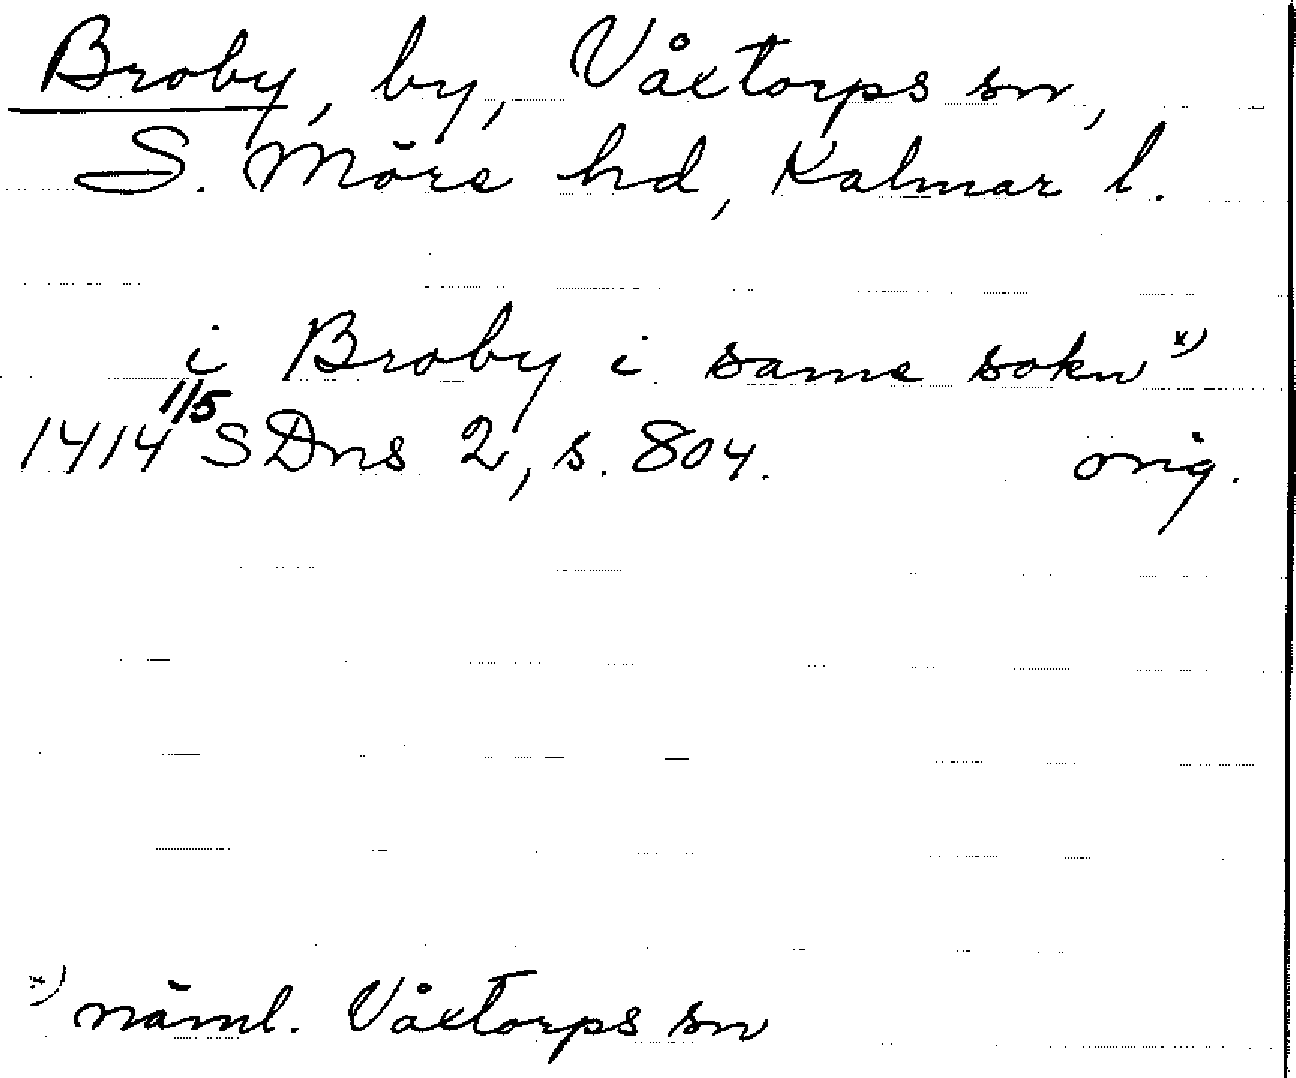 Broby, by, Våxtorps sn,
S. Möre hd, Kalmar l.
i Broby i same sokn x)
1414 1/5 SDns 2, s. 804. orig.
x) näml. Våxtorps sn